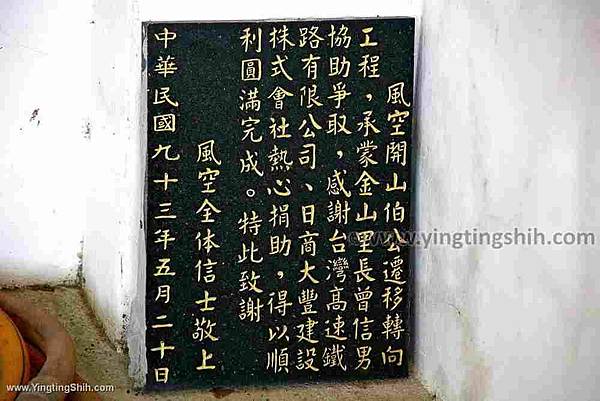 風空開山伯公遷移轉向
工程，承蒙金山里長曾信男
協助爭取，感謝台灣高速鐵
路有限公司、日商大豐建設
株式會社熱心捐助，得以順
利圓滿完成。特此致謝
風空全体信士敬上
中華民國九十三年五月二十日
www.yingtingshih.com
© www.YingTingShih.com